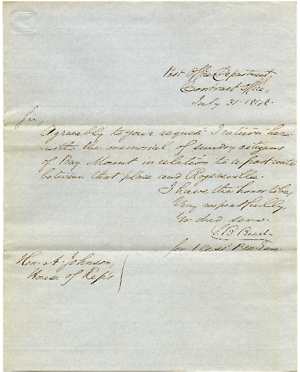 Post Office Department
Contract Office,
July 31 1848
Sir
Agreeably to your request I return here
with the memorial of sundry citizens
of Bay Mount in relation to a post route
between that place and Rogersville.
I have the honor to be
Very respectfully
Yr obed serv.
Hon. A. Johnson
House of Reps